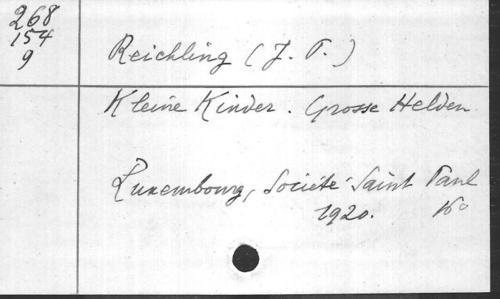 268
154
9
Reichling (J. P.)
Kleine Kinder. Grosse Helden
Luxembourg, Société Saint Paul
1920. 16°